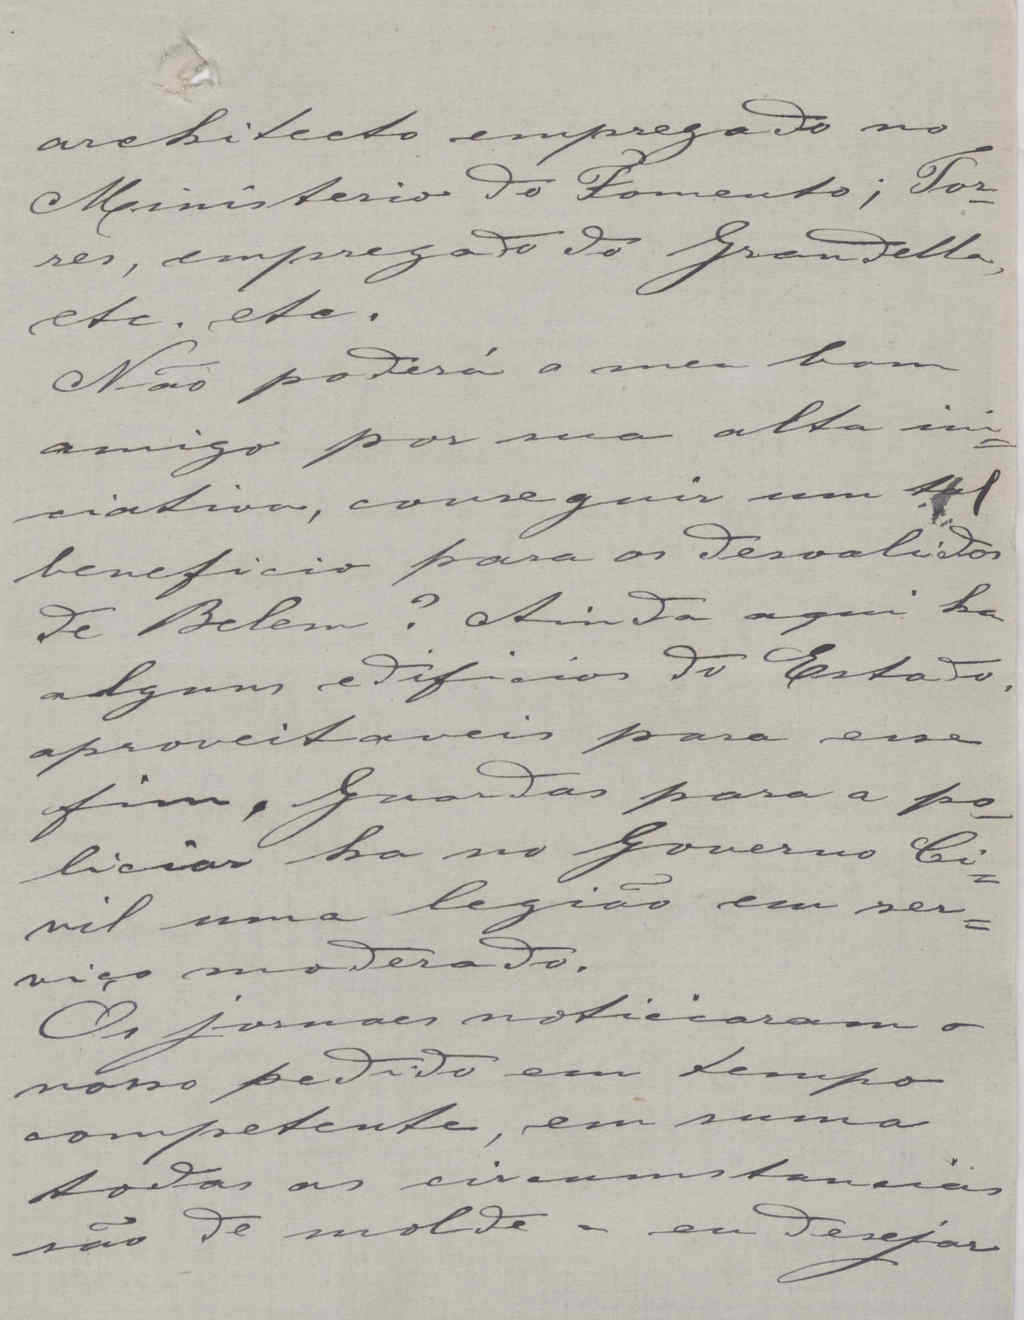 architecto empregado no
Ministerio do Fomento; Tor-
res, empregado do Grandella,
etc. etc.
Não poderá o meu bom
amigo por sua alta ini=
ciativa, conseguir um tal
beneficio para os desvalidos
de Belem? Ainda aqui ha
alguns edificios do Estado,
aproveitaveis para esse
fim, Guardas para a po-
liciar ha no Governo Ci=
vil uma legião em ser=
viço moderado.
Os jornaes noticiaram o
nosso pedido em tempo
competente, em suma
todas as circumstancias
são de molde a eu desejar